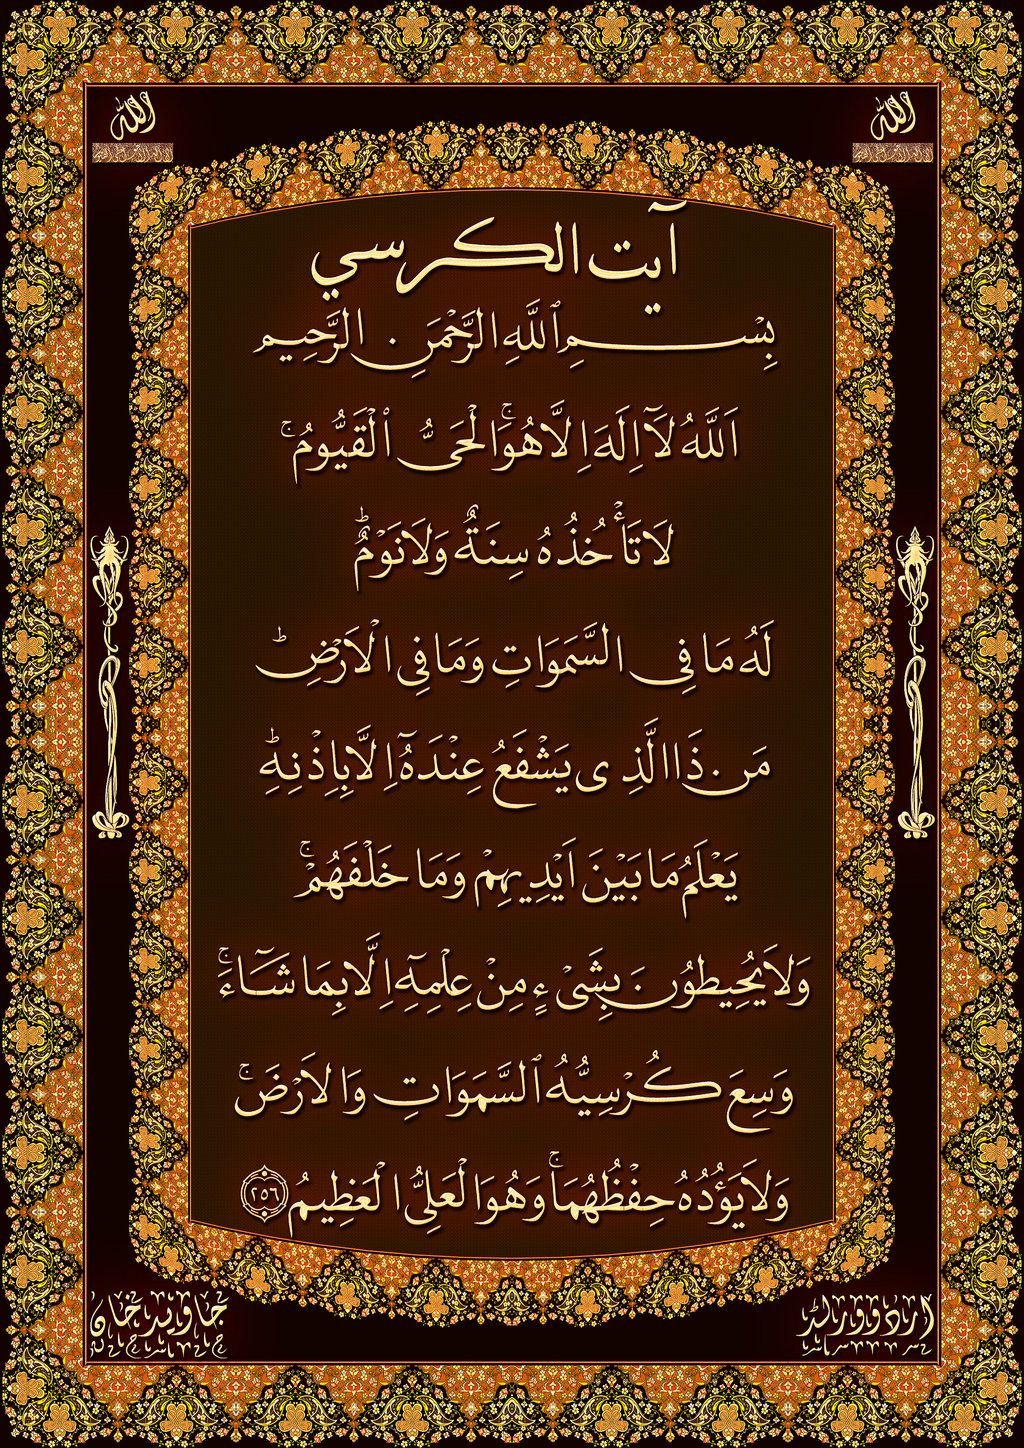 الله الله
آيت الكرسي
بِسْمِ ٱللَّهِ الرَّحْمَنِ الرَّحِيمِ
اَللَّهُ لَآ اِلَهَ اِلَّا هُوَۚ الْحَىُّ ٱلْقَيُّومُۚ
لَا تَأْخُذُهُ سِنَةٌ وَلَا نَوْمٌؕ
لَهُ مَا فِى السَّمَوَاتِ وَمَا فِى الْاَرْضِؕ
مَن ذَا الَّذِى يَشْفَعُ عِنْدَهُٓ اِلَّا بِاِذْنِهِؕ
يَعْلَمُ مَا بَيْنَ اَيْدِيهِمْ وَمَا خَلْفَهُمْۚ
وَلَا يُحِيطُونَ بِشَىْءٍ مِنْ عِلْمِهِٓ اِلَّا بِمَا شَآءَۚ
وَسِعَ كُرْسِيُّهُ ٱلسَّمَوَاتِ وَالَارْضَۚ
وَلَا يَؤُدُهُ حِفْظُهُمَاۚ وَهُوَ الْعَلِىُّ الْعَظِيمُ ٢٥٦
اردو ورلڈ جاويد خان